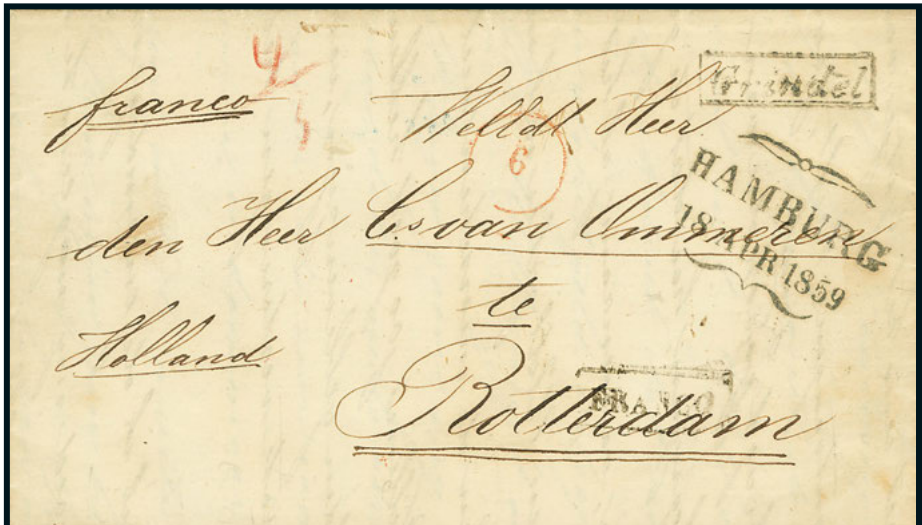 Grindel
franco
WelEdl Heer
6
HAMBURG
18 APR 1859
den Heer Cs van Ommeren
te
Holland
FRANCO
Rotterdam